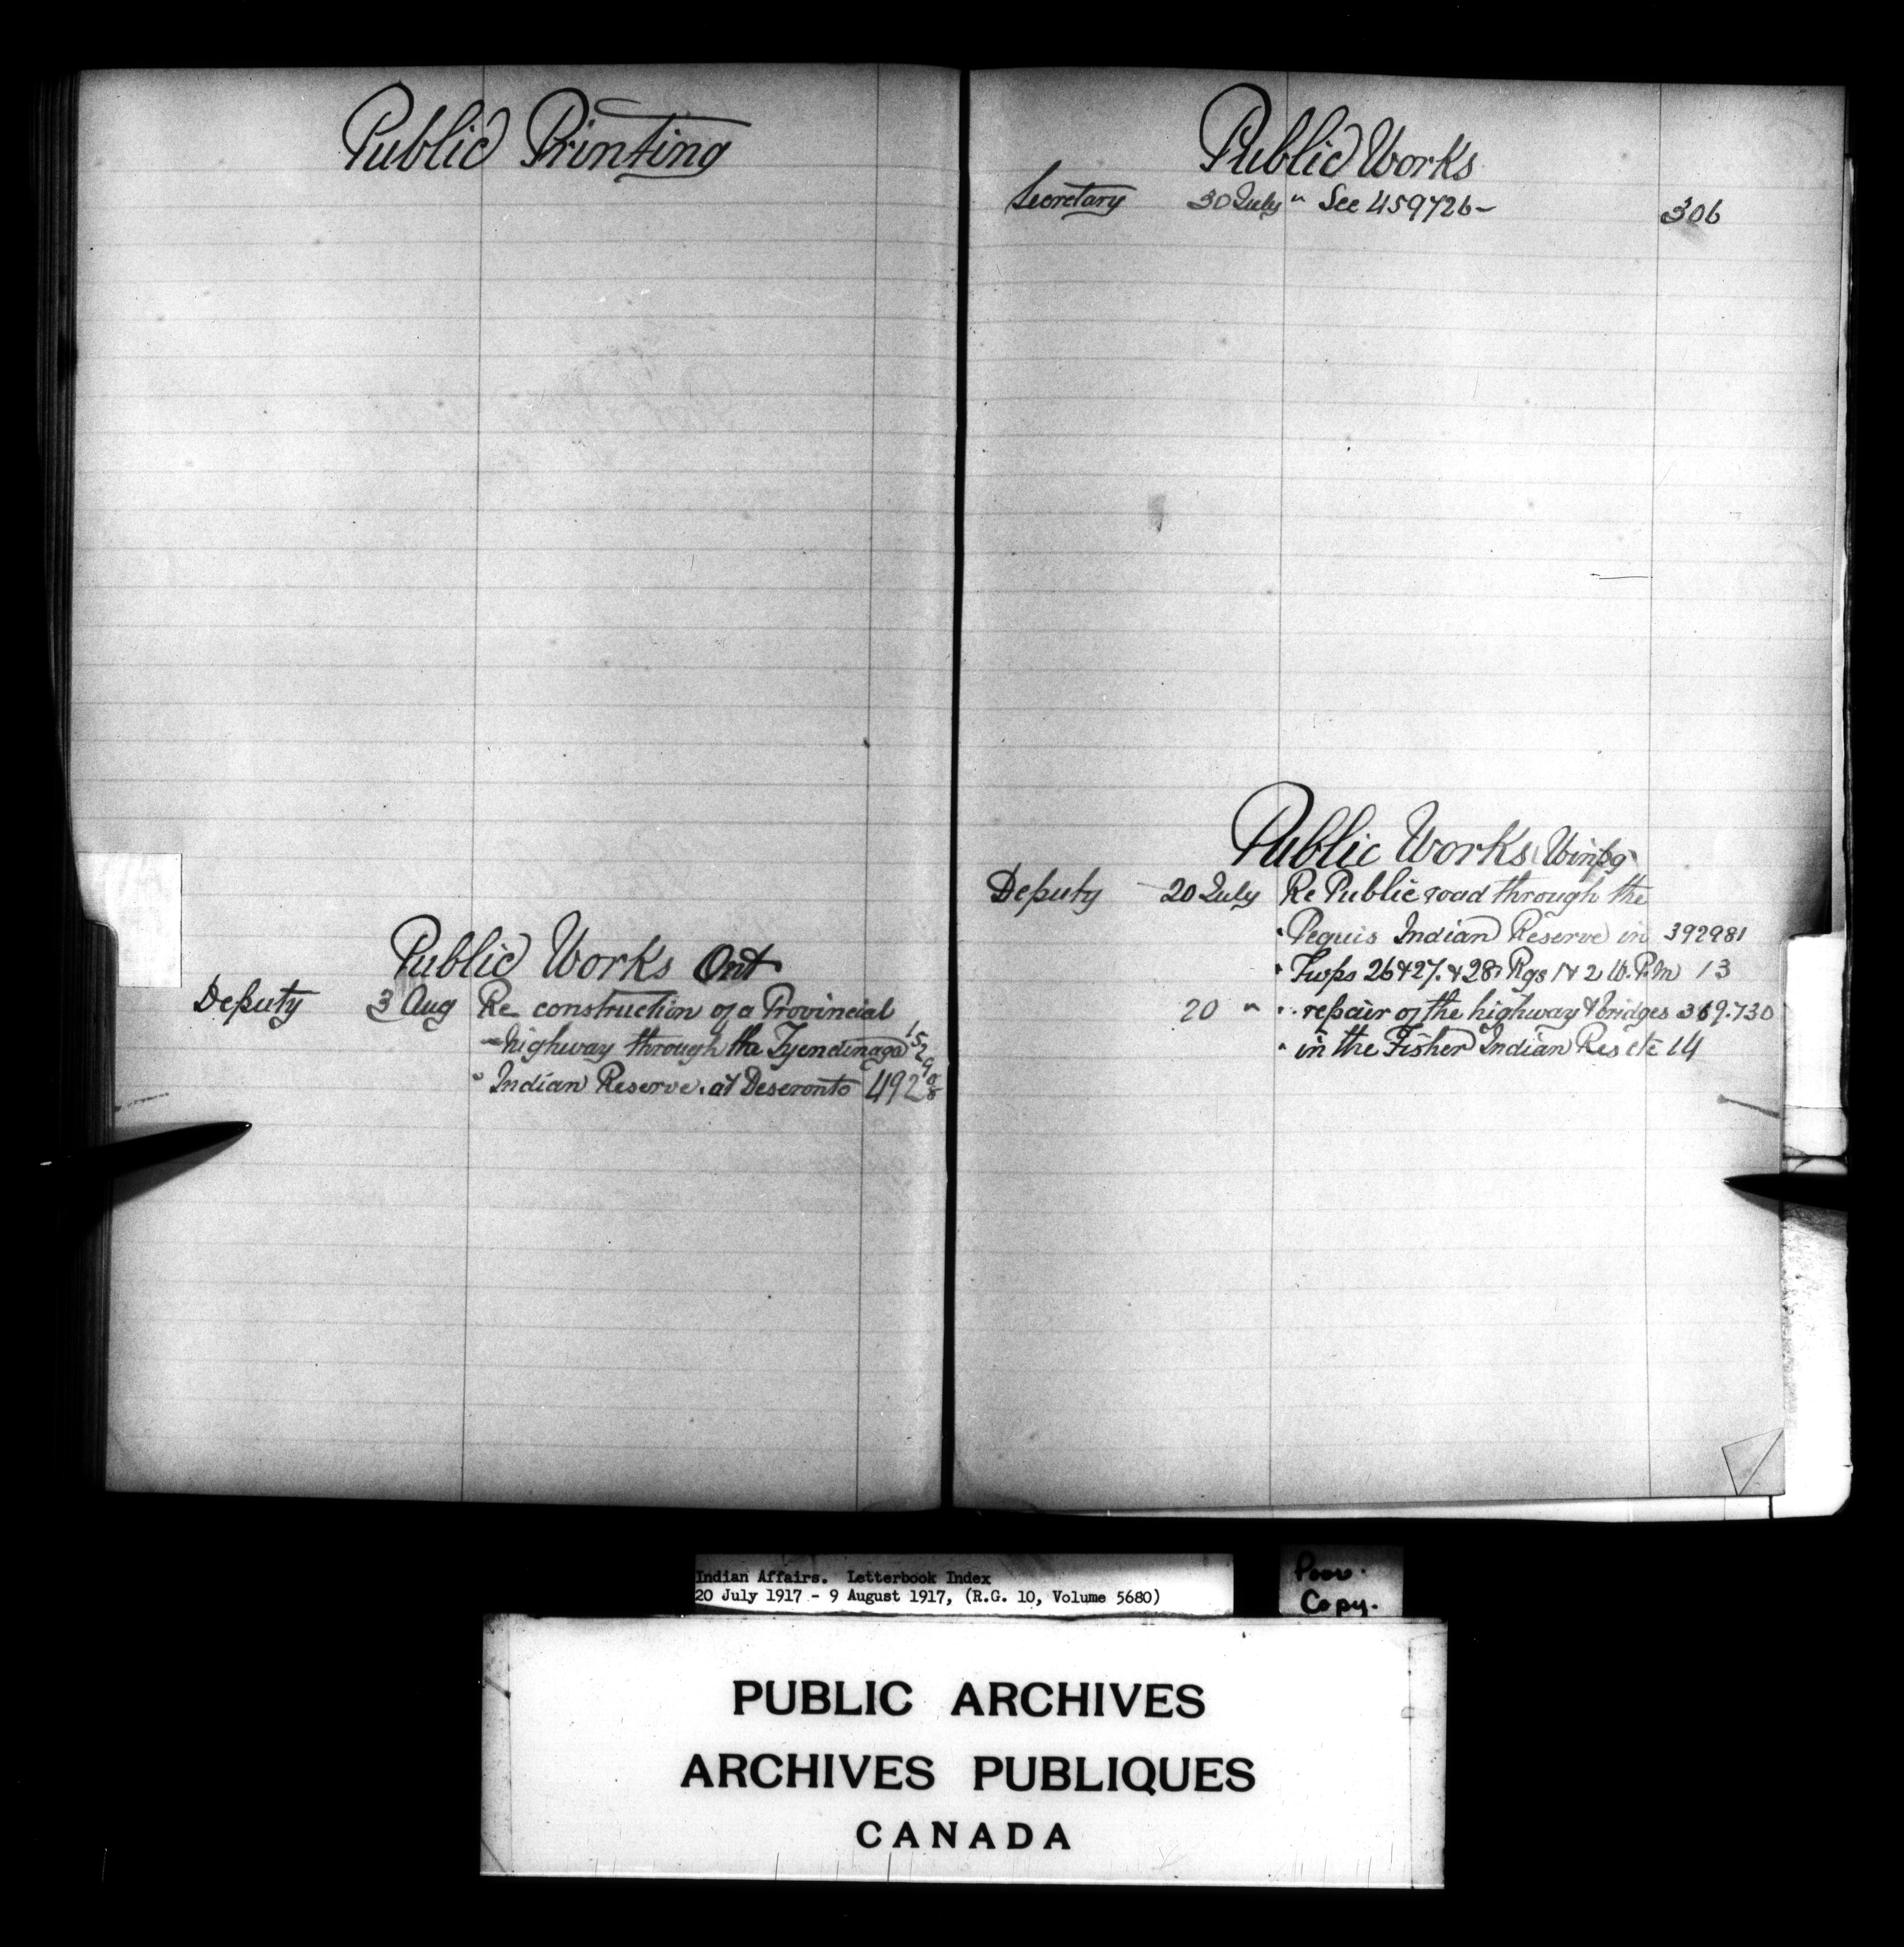 Public Printing
Public Works Ont
Deputy 3 Aug Re construction of a Provincial
highway through the Tyendinaga
" Indian Reserve at Deseronto 492
Public Works
Secretary 30 July " See 459726- 306
Public Works Winpg
Deputy 20 July Re Public road through the
" Peguis Indian Reserve in 392981
" Twps 26 & 27. & 28 Rgs 1 & 2 W.P.M 13
20 " " repair of the highway & bridges 369.730
" in the Fisher Indian Res etc 14
Indian Affairs. Letterbook Index
20 July 1917 - 9 August 1917, (R.G. 10, Volume 5680)
Poor.
Copy.
PUBLIC ARCHIVES
ARCHIVES PUBLIQUES
CANADA